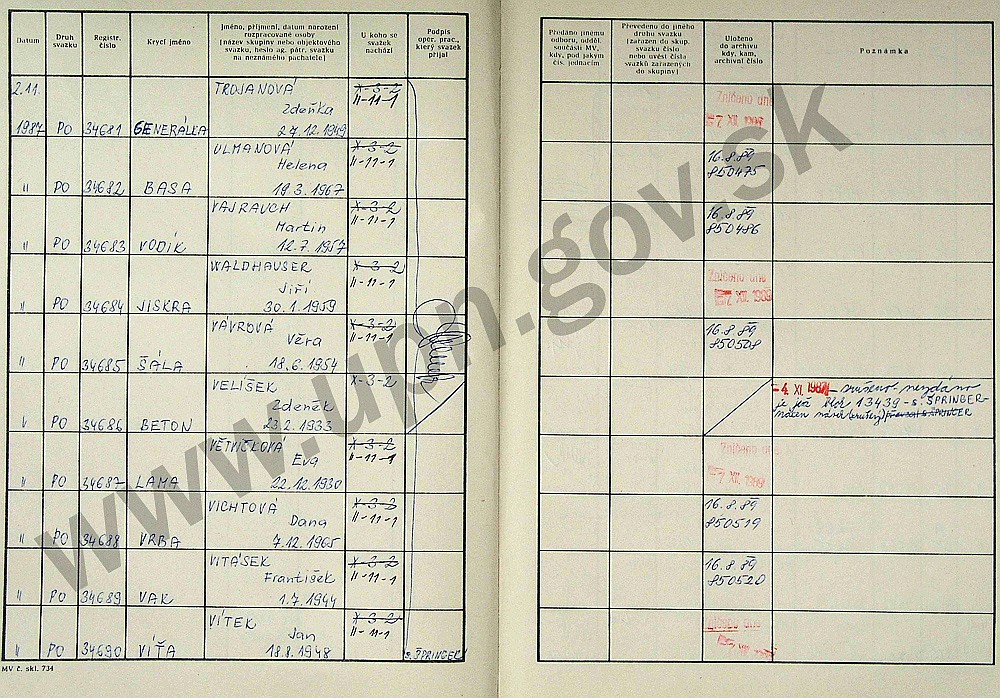 Datum
Druh
svazku
Registr.
číslo
Krycí jméno
Jméno, příjmení, datum narození
rozpracované osoby
(název skupiny nebo objektového
svazku, heslo ag. pátr. svazku
na neznámého pachatele)
U koho se
svazek
nachází
Podpis
oper. prac.,
který svazek
přijal
Předáno jinému
odboru, odděl.
součásti MV,
kdy, pod jakým
čís. jednacím
Převedeno do jiného
druhu svazku
(zařazen do skup.
svazku číslo
nebo uvést čísla
svazků zařazených
do skupiny)
Uloženo
do archivu
kdy, kam,
archivní číslo
Poznámka
2.11.
1987 PO 34681 GENERÁLKA
TROJANOVÁ
Zdeňka
27.12.1949
X-3-2
II-11-1
Zničeno dne
" PO 34682 BASA
ULMANOVÁ
Helena
19.3.1967
X-3-2
II-11-1
16.8.89
850475
" PO 34683 VODÍK
VAJRAUCH
Martin
12.7.1957
X-3-2
II-11-1
16.8.89
850486
" PO 34684 JISKRA
WALDHAUSER
Jiří
30.1.1959
X-3-2
II-11-1
Zničeno dne
-7. XII. 1989
" PO 34685 ŠÁLA
VÁVROVÁ
Věra
18.6.1954
X-3-2
II-11-1
16.8.89
850508
" PO 34686 BETON
VELÍŠEK
Zdeněk
23.2.1933
X-3-2
-4. XI. 1987 – zrušeno - nevydáno
je již blok 13439 - s. ŠPRINGER-
" PO 34687 LAMA
VĚTVIČKOVÁ
Eva
22.12.1930
X-3-2
II-11-1
Zničeno dne
-7. XII. 1989
" PO 34688 VRBA
VICHTOVÁ
Dana
7.12.1965
X-3-2
II-11-1
16.8.89
850519
" PO 34689 VAK
VITÁSEK
František
1.7.1944
X-3-2
II-11-1
16.8.89
850520
" PO 34690 VÍŤA
VÍTEK
Jan
18.8.1948
X-3-2
II-11-1
s. ŠPRINGER
MV č. skl. 734
www.upn.gov.sk